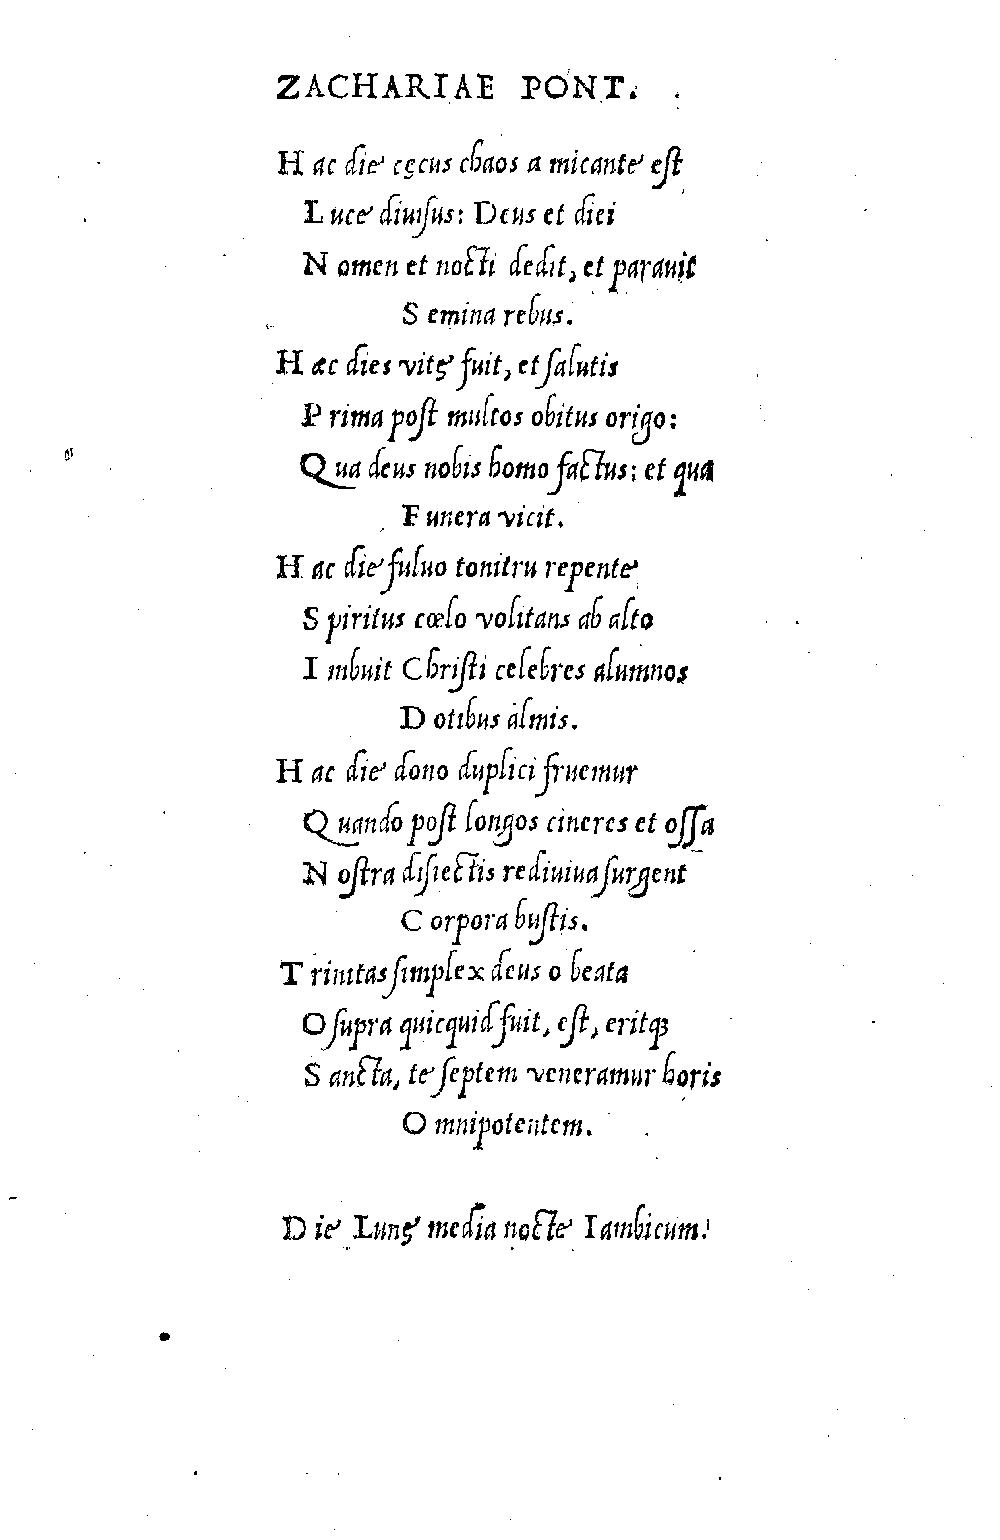 ZACHARIAE PONT.
Hac die cęcus chaos a micante est
Luce diuisus: Deus et diei
Nomen et nocti dedit, et parauit
Semina rebus.
Hæc dies vitę fuit, et salutis
Prima post multos obitus origo:
Qua deus nobis homo factus: et qua
Funera vicit.
Hac die fuluo tonitru repente
Spiritus cœlo volitans ab alto
Imbuit Christi celebres alumnos
Dotibus almis.
Hac die dono duplici fruemur
Quando post longos cineres et ossa
Nostra disiectis rediuiua surgent
Corpora bustis.
Trinitas simplex deus o beata
O supra quicquid fuit, est, eritqꝫ
Sancta, te septem veneramur horis
Omnipotentem.
Die Lunę media nocte Iambicum.